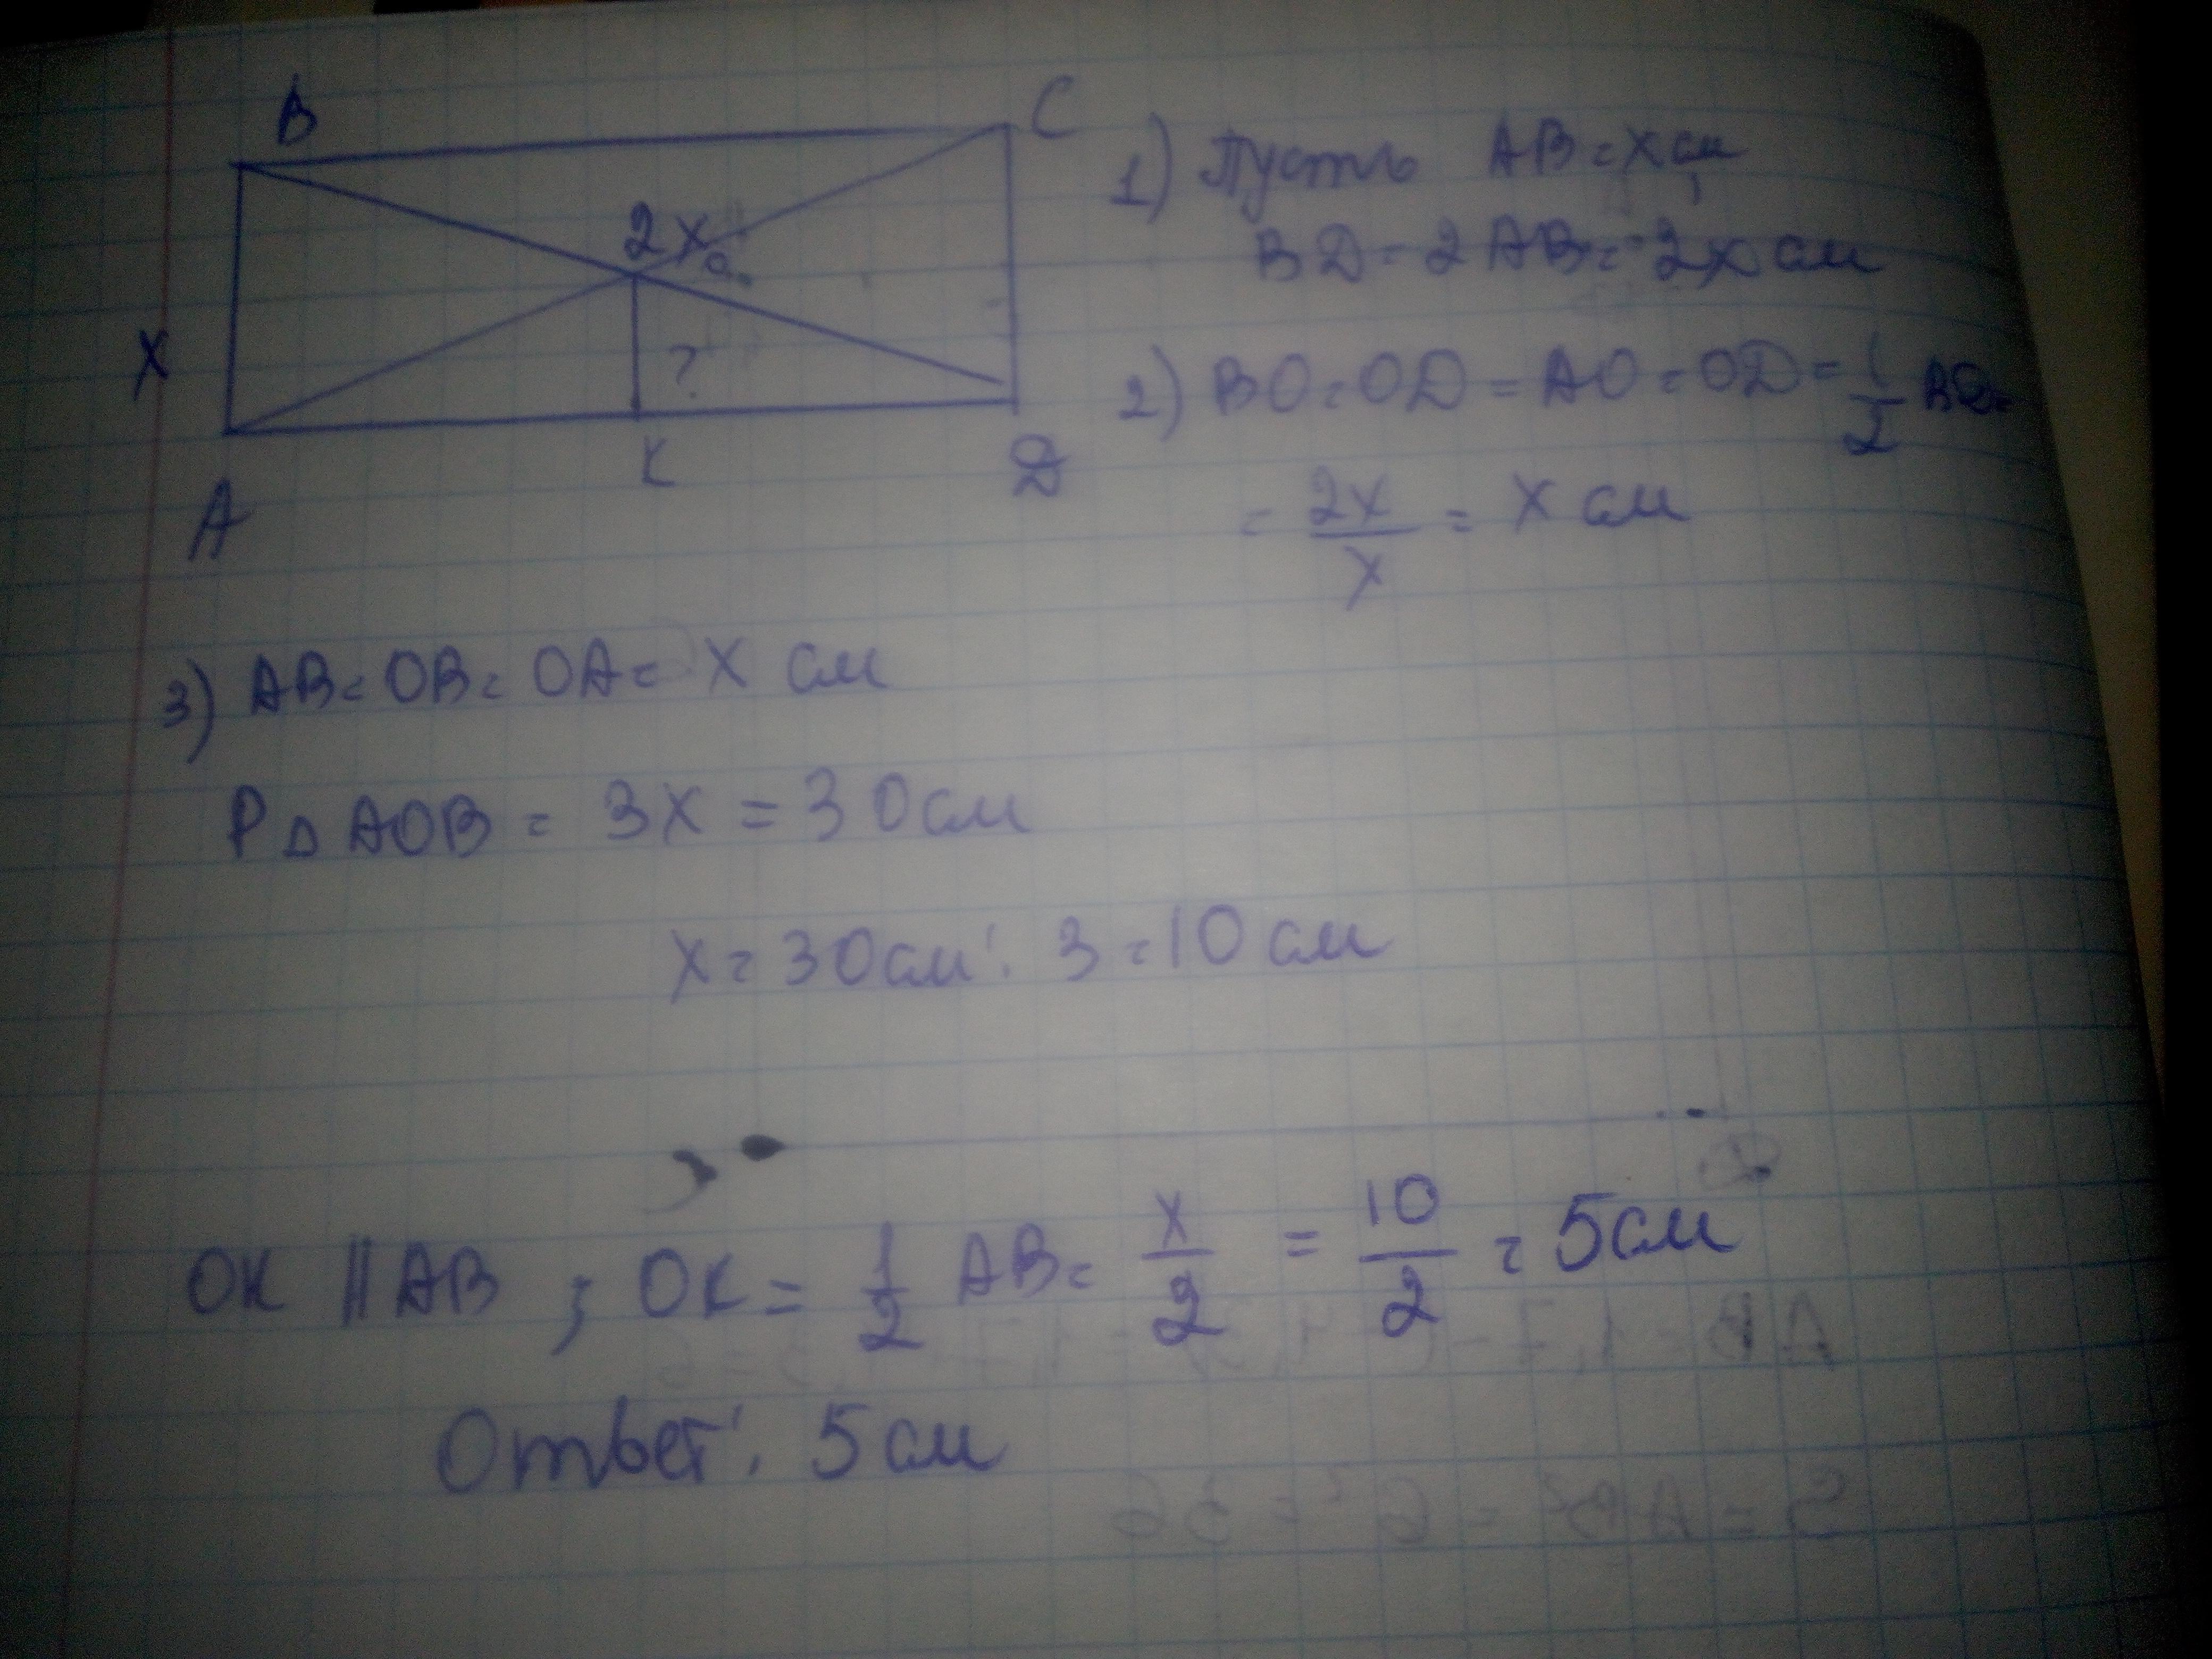 B
C
2x
O
x
?
A
K
D
1) Пусть AB = x см
BD = 2AB = 2x см
2) BO = OD = AO = OD = 1/2 BD =
= 2x/x = x см
3) AB = OB = OA = x см
P△AOB = 3x = 30 см
x = 30 см : 3 = 10 см
OK || AB ; OK = 1/2 AB = x/2 = 10/2 = 5 см
Ответ: 5 см